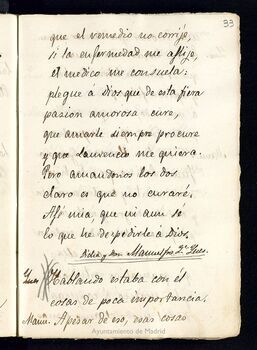 33
que el remedio no corrijo,
si la enfermedad me aflije,
el medico me consuela:
plegue á Dios que de esta fiera
pasion amorosa cure,
que amarle siempre procure
y que Laurencio me quiera.
Pero amandonos los dos
claro es que no curaré.
Ay mia, que ni aun se
lo que he de pedirle á Dios.
Dicha y Don Manuel por
Hablando estaba con él
cosas de poca importancia.
Man. Apesar de eso, esas cosas
Ayuntamiento de Madrid